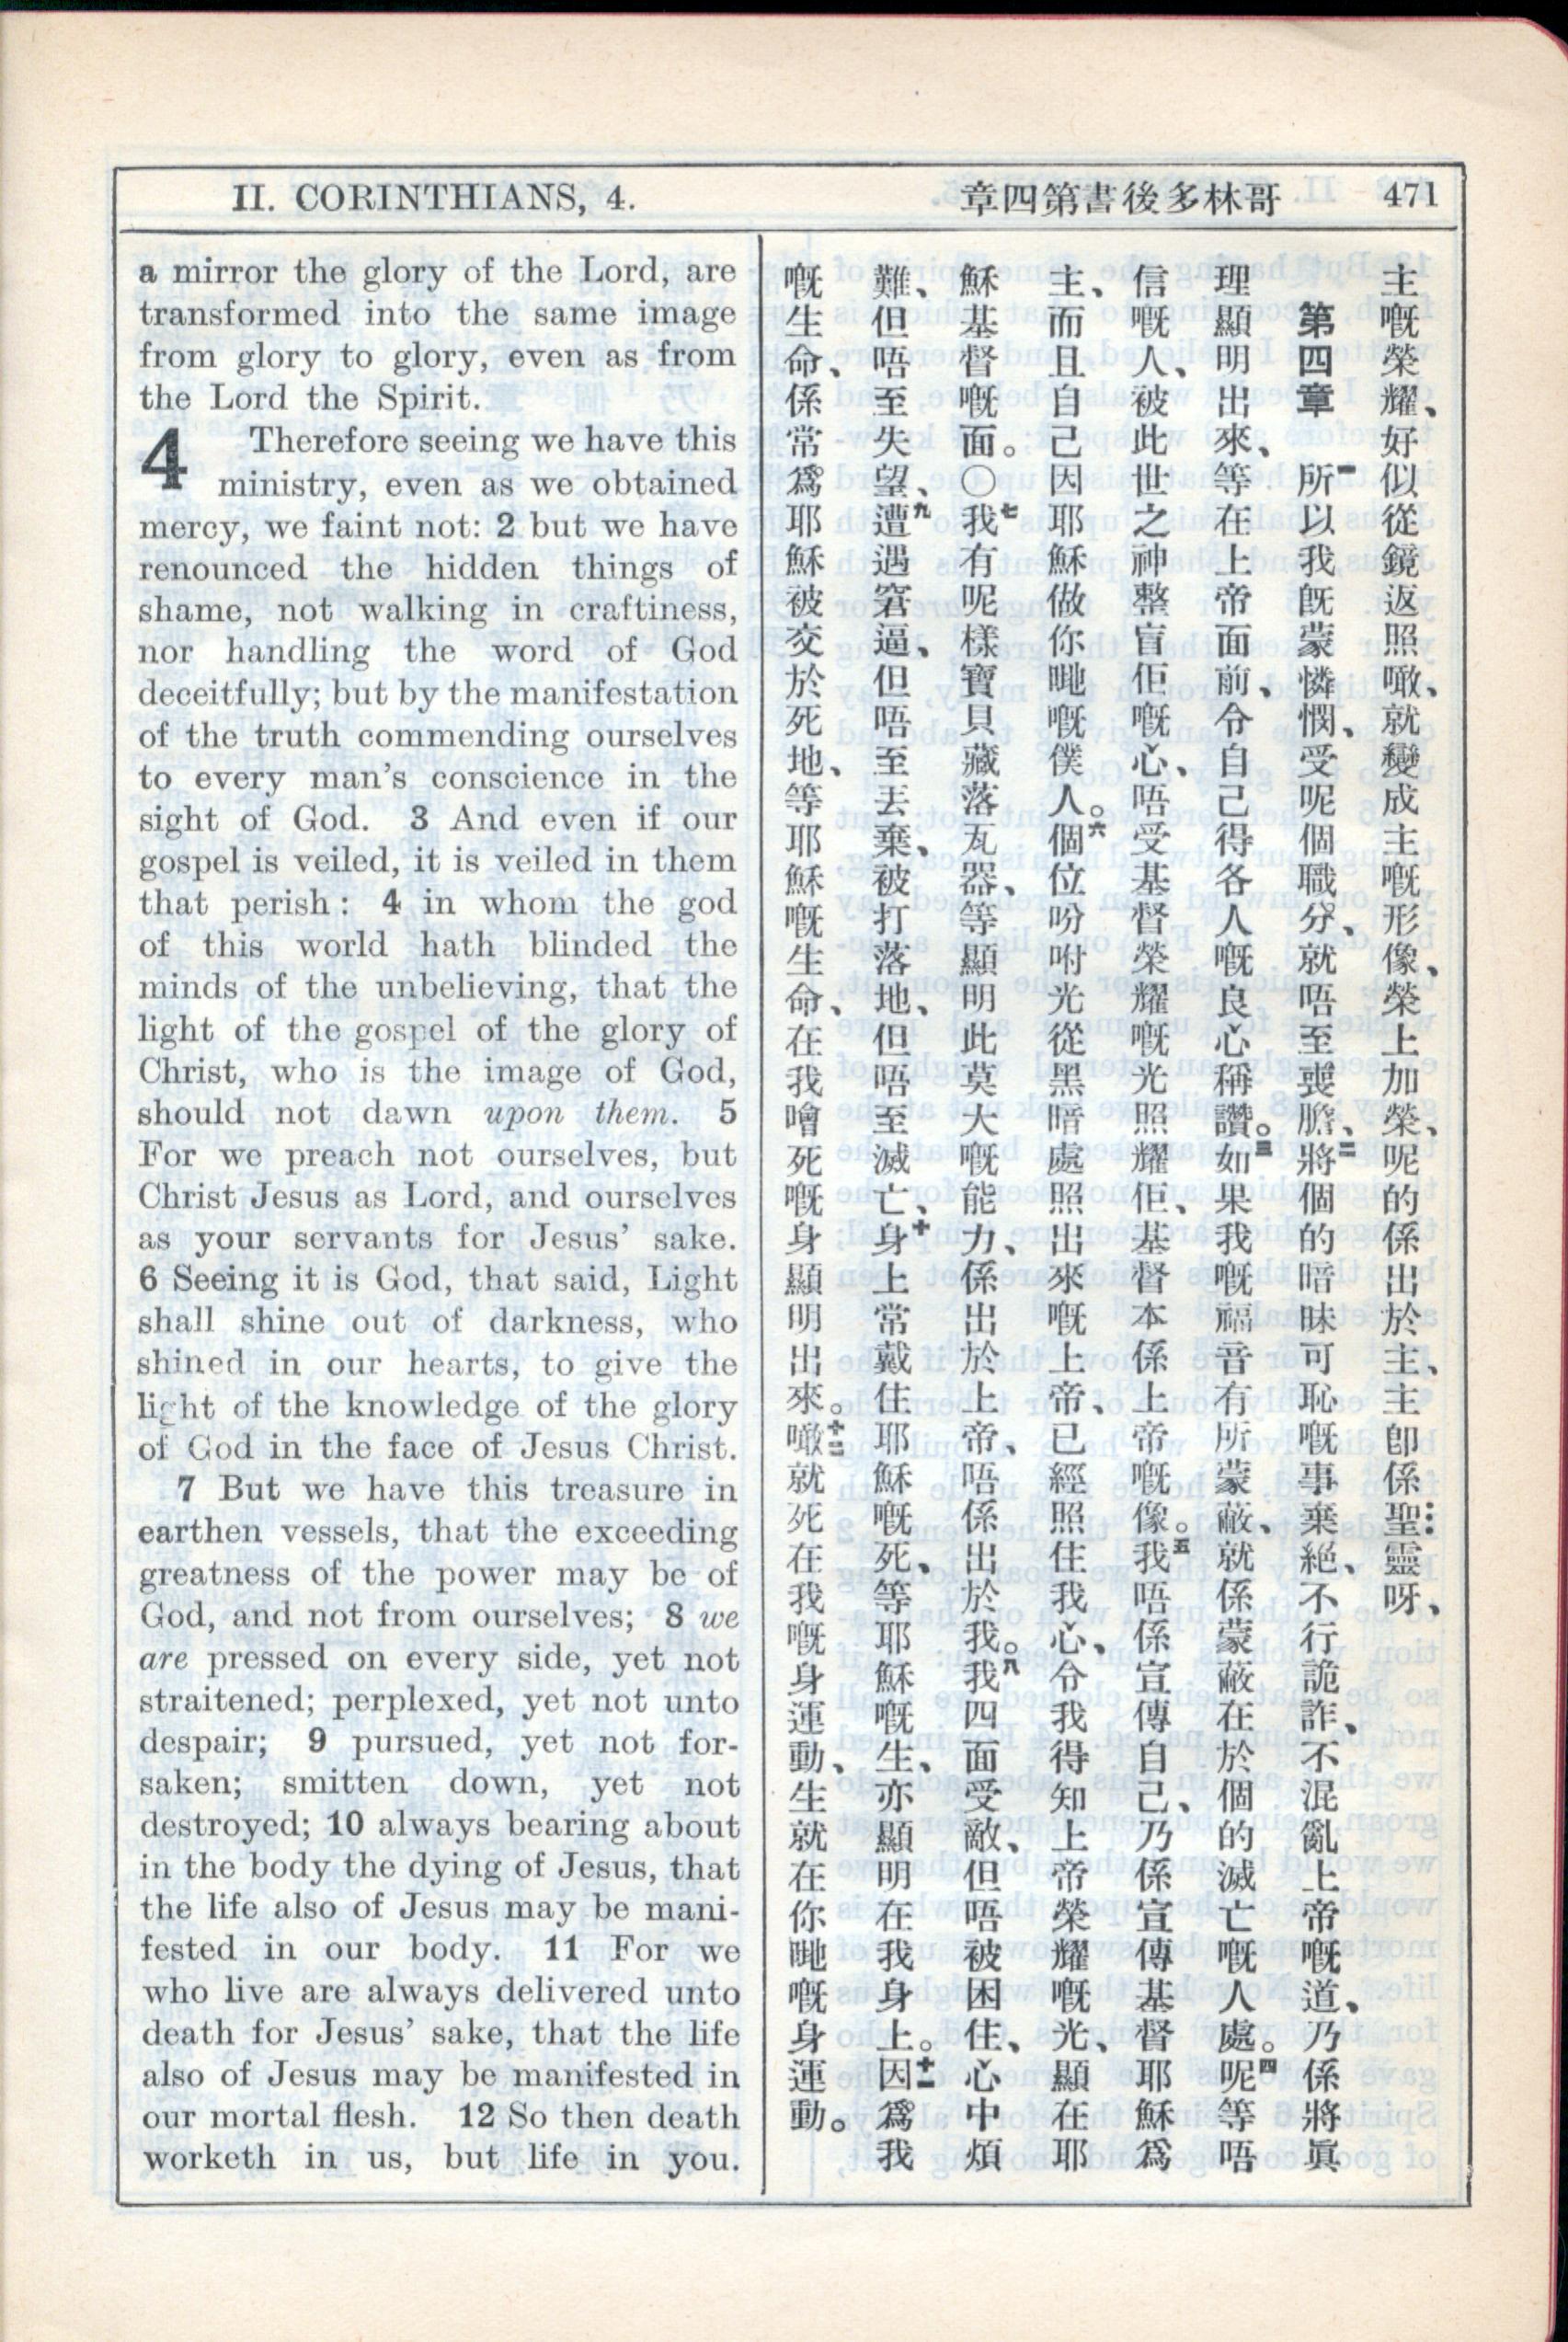 II. CORINTHIANS, 4.
章四第書後多林哥 471
a mirror the glory of the Lord, are
transformed into the same image
from glory to glory, even as from
the Lord the Spirit.
4 Therefore seeing we have this
ministry, even as we obtained
mercy, we faint not: 2 but we have
renounced the hidden things of
shame, not walking in craftiness,
nor handling the word of God
deceitfully; but by the manifestation
of the truth commending ourselves
to every man's conscience in the
sight of God. 3 And even if our
gospel is veiled, it is veiled in them
that perish: 4 in whom the god
of this world hath blinded the
minds of the unbelieving, that the
light of the gospel of the glory of
Christ, who is the image of God,
should not dawn upon them. 5
For we preach not ourselves, but
Christ Jesus as Lord, and ourselves
as your servants for Jesus' sake.
6 Seeing it is God, that said, Light
shall shine out of darkness, who
shined in our hearts, to give the
light of the knowledge of the glory
of God in the face of Jesus Christ.
7 But we have this treasure in
earthen vessels, that the exceeding
greatness of the power may be of
God, and not from ourselves; 8 we
are pressed on every side, yet not
straitened; perplexed, yet not unto
despair; 9 pursued, yet not for-
saken; smitten down, yet not
destroyed; 10 always bearing about
in the body the dying of Jesus, that
the life also of Jesus may be mani-
fested in our body. 11 For we
who live are always delivered unto
death for Jesus' sake, that the life
also of Jesus may be manifested in
our mortal flesh. 12 So then death
worketh in us, but life in you.
主嘅榮耀、好似從鏡返照噉、就變成主嘅形像、榮上加榮、呢的係出於主、主卽係聖靈呀、
第四章 一所以我旣蒙憐憫、受呢個職分、就唔至喪膽、二將個的暗昧可恥嘅事棄絕、不行詭詐、不混亂上帝嘅道、乃係將眞
理顯明出來、等在上帝面前、令自己得各人嘅良心稱讚。三如果我嘅福音有所蒙蔽、就係蒙蔽在於個的滅亡嘅人處。四呢等唔
信嘅人、被此世之神整盲佢嘅心、唔受基督榮耀嘅光照耀佢、基督本係上帝嘅像。五我唔係宣傳自己、乃係宣傳基督耶穌爲
主、而且自己因耶穌做你哋嘅僕人。六個位吩咐光從黑暗處照出來嘅上帝、已經照住我心、令我得知上帝榮耀嘅光、顯在耶
穌基督嘅面。〇七我有呢樣寶貝藏落瓦器、等顯明此莫大嘅能力、係出於上帝、唔係出於我。八我四面受敵、但唔被困住、心中煩
難、但唔至失望、九遭遇窘逼、但唔至丟棄、被打落地、但唔至滅亡、十身上常戴住耶穌嘅死、等耶穌嘅生、亦顯明在我身上。十一因爲我
嘅生命、係常爲耶穌被交於死地、等耶穌嘅生命、在我噲死嘅身顯明出來。十二噉就死在我嘅身運動、生就在你哋嘅身運動。